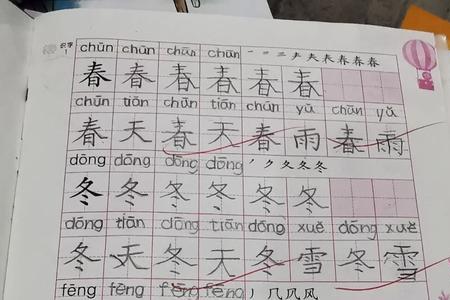 识字 1 chūn chūn chūn chūn 一 二 三 声 夫 表 春 春 春
春 春 春 春 春 春
chūn tiān chūn tiān chūn yǔ chūn yǔ
春 天 春 天 春 雨 春 雨
dōng dōng dōng dōng 丿 ク 夂 冬 冬
冬 冬 冬 冬 冬 冬
dōng tiān dōng tiān dōng xuě dōng xuě
冬 天 冬 天 冬 雪 冬 雪
fēng fēng fēng fēng 丿 几 风 风